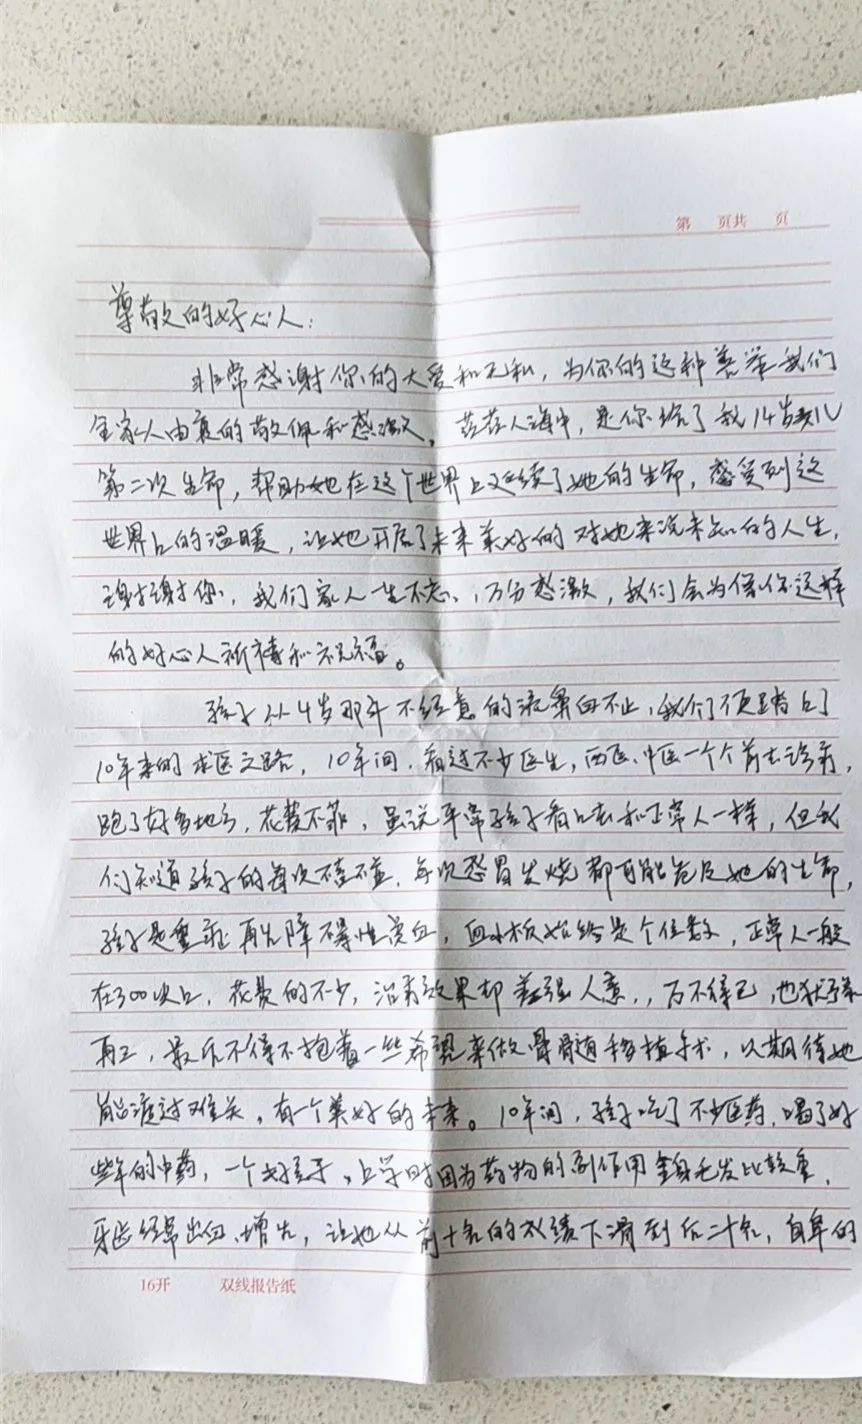 第 页共 页
尊敬的好心人：
非常感谢你的大爱和无私，为你的这种善举我们
全家人由衷的敬佩和感激。茫茫人海中，是你给了我14岁女儿
第二次生命，帮助她在这个世界上延续了她的生命，感受到这
世界上的温暖，让她开启了未来美好的对她来说未知的人生，
谢谢你，我们家人一生不忘、万分感激，我们会为像你这样
的好心人祈祷和祝福。
孩子从4岁那年不经意的流鼻血不止，我们便踏上了
10年来的求医之路，10年间，看过不少医生，西医、中医一个个前去诊病，
跑了好多地方，花费不菲，虽说平常孩子看上去和正常人一样，但我
们知道孩子的每次磕磕，每次感冒发烧都可能危及她的生命，
孩子是重症再生障碍性贫血，血小板始终是个位数，正常人一般
在300以上，花费的不少，治疗效果却差强人意，万不得已，也犹豫
再三，最后不得不抱着一些希望来做骨髓移植手术，以期待她
能渡过难关，有一个美好的未来。10年间，孩子吃了不少医药，喝了好
些年的中药，一个女孩子，上学时因为药物的副作用全身毛发比较重，
牙齿经常出血、增生，让她从前十名的成绩下滑到后二十名，自卑的
16开 双线报告纸